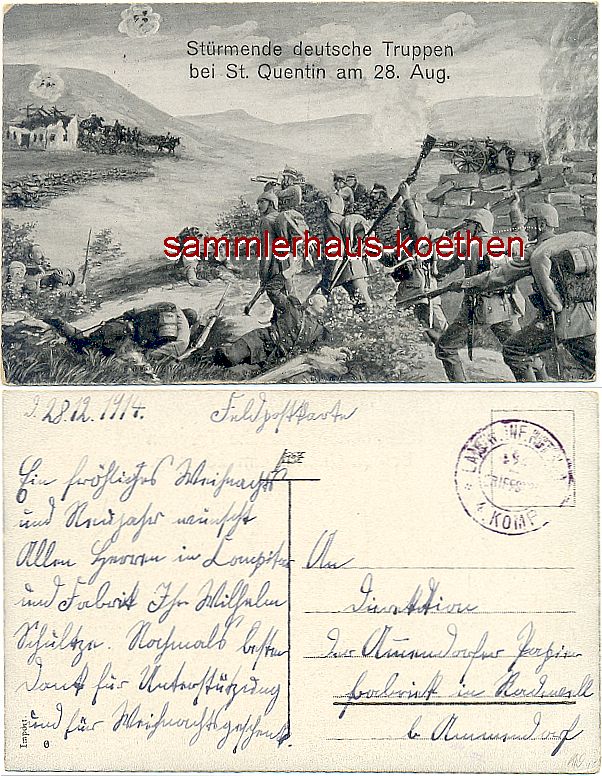 Stürmende deutsche Truppen
bei St. Quentin am 28. Aug.
sammlerhaus-koethen
28.12.1914. Feldpostkarte
Ein fröhliches Weihnachts
und Neujahr wünscht
Allen Herren in
und Fabrik Ihr Wilhelm
Schultze. Nochmals besten
Dank für Unterstützung
und für Weihnachtsgeschenk.
4. KOMP
An
Direktion
der Ammendorfer Papier
fabrik in Radewell
b. Ammendorf
Import.